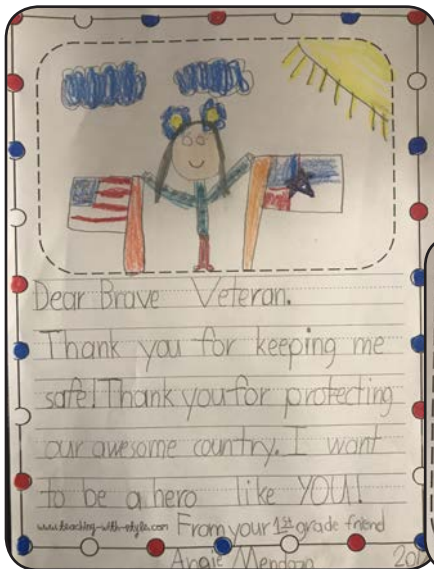 Dear Brave Veteran.
Thank you for keeping me
safe! Thank you for protecting
our awesome country. I want
to be a hero like YOU!
www.teaching-with-style.com From your 1st grade friend
Angie